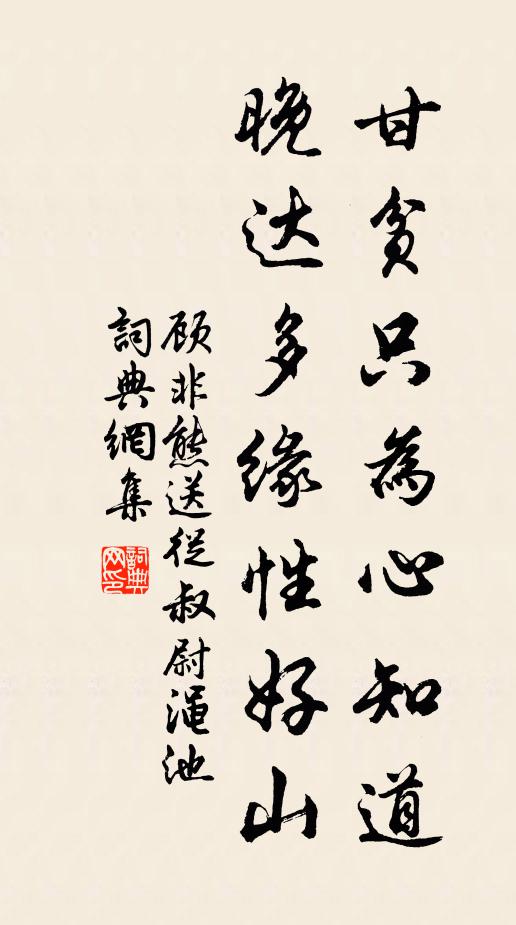 甘贫只為心知道
晚达多缘性好山
顾非熊送從叔尉渑池
詞典網集
詞典网印